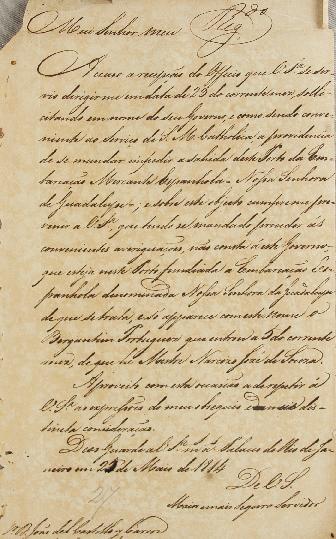 Meu Senhor meu
Reg.do
Accuso a recepção do Officio que V. S.ª se ser-
vio dirigirme em data de 23 do corrente mez, solli-
citando em nome do seu Governo, e como sendo conve-
niente ao serviço de S. M. Catholica a providencia
de se mandar impedir a sahida deste Porto da Em-
barcação Mercante Espanhola - Nossa Senhora
de Guadalupe -; e sobre este objecto cumpre-me pre-
venir a V. S.ª, que tendo se mandado proceder ás
convenientes averiguações, não consta a este Governo
que esteja neste Porto fundeada a Embarcação Es-
panhola denominada Nossa Senhora da Guadalupe
de que se trata, e só apparece com este nome o
Bergantim Portuguez que entrou a 5 do corrente
mez, de que he Mestre Narcizo José de Souza.
Aproveito com esta occasião a de repetir a
V. S.ª as expressões do meu obsequio e mais dis-
tincta consideração.
Deos Guarde a V. S.ª m. a. Palacio do Rio de Ja-
neiro em 25 de Maio de 1814
De V. S.
Maior e mais Seguro Servidor
João del Castillo y Carroz